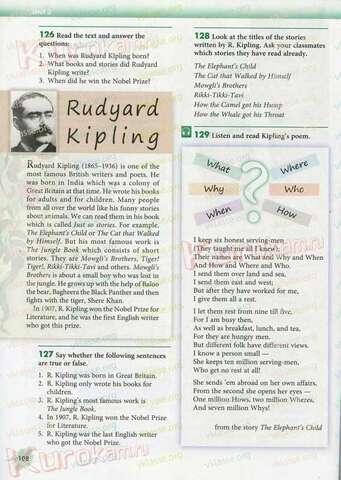 Unit 2
126 Read the text and answer the
questions:
1. When was Rudyard Kipling born?
2. What books and stories did Rudyard
Kipling write?
3. When did he win the Nobel Prize?
Rudyard
Kipling
Rudyard Kipling (1865–1936) is one of the
most famous British writers and poets. He
was born in India which was a colony of
Great Britain at that time. He wrote his books
for adults and for children. Many people
from all over the world like his funny stories
about animals. We can read them in his book
which is called Just so stories. For example,
The Elephant's Child or The Cat that Walked
by Himself. But his most famous work is
The Jungle Book which consists of short
stories. They are Mowgli's Brothers, Tiger!
Tiger!, Rikki-Tikki-Tavi and others. Mowgli's
Brothers is about a small boy who was lost in
the jungle. He grows up with the help of Baloo
the bear, Bagheera the Black Panther and then
fights with the tiger, Shere Khan.
In 1907, R. Kipling won the Nobel Prize for
Literature, and he was the first English writer
who got this prize.
127 Say whether the following sentences
are true or false.
1. R. Kipling was born in Great Britain.
2. R. Kipling only wrote his books for
children.
3. R. Kipling's most famous work is
The Jungle Book.
4. In 1907, R. Kipling won the Nobel Prize
for Literature.
5. R. Kipling was the last English writer
who got the Nobel Prize.
108
128 Look at the titles of the stories
written by R. Kipling. Ask your classmates
which stories they have read already.
The Elephant's Child
The Cat that Walked by Himself
Mowgli's Brothers
Rikki-Tikki-Tavi
How the Camel got his Hump
How the Whale got his Throat
129 Listen and read Kipling's poem.
What
Where
Why
Who
When
How
I keep six honest serving-men
(They taught me all I knew);
Their names are What and Why and When
And How and Where and Who.
I send them over land and sea,
I send them east and west;
But after they have worked for me,
I give them all a rest.
I let them rest from nine till five,
For I am busy then,
As well as breakfast, lunch, and tea,
For they are hungry men.
But different folk have different views.
I know a person small —
She keeps ten million serving-men,
Who get no rest at all!
She sends 'em abroad on her own affairs,
From the second she opens her eyes —
One million Hows, two million Wheres,
And seven million Whys!
from the story The Elephant's Child
kurokam.ru
kurokam.ru